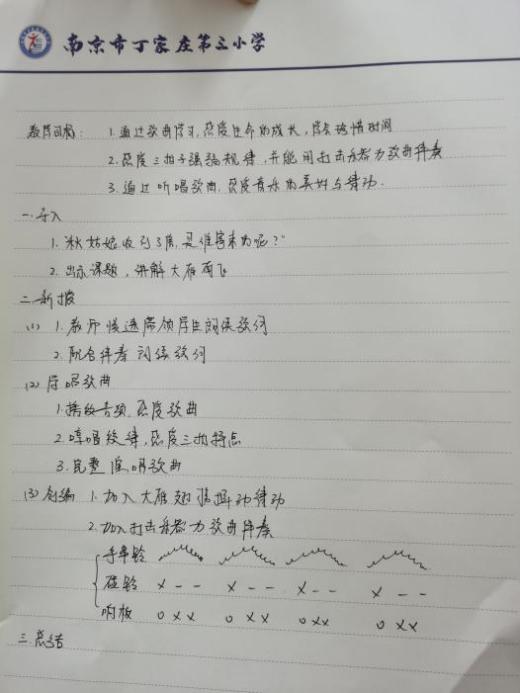 南京市丁家庄第三小学
教学目标: 1.通过歌曲学习,感受生命的成长,学会珍惜时间
2.感受三拍子强弱规律,并能用打击乐器为歌曲伴奏
3.通过听唱歌曲,感受音乐的美好与律动.
一.导入
1."秋姑娘收到了信,是谁寄来的呢?"
2.出示课题,讲解大雁南飞
二.新授
(1) 1.教师慢速带领学生朗读歌词
2.配合伴奏朗读歌词
(2) 学唱歌曲
1.播放音频,感受歌曲
2.哼唱旋律,感受三拍特点
3.完整演唱歌曲
(3) 创编 1.加入大雁翅膀挥动律动
2.加入打击乐器为歌曲伴奏
手串铃
碰铃 X - - X - - X - - X - -
响板 0 X X 0 X X 0 X X 0 X X
三.总结